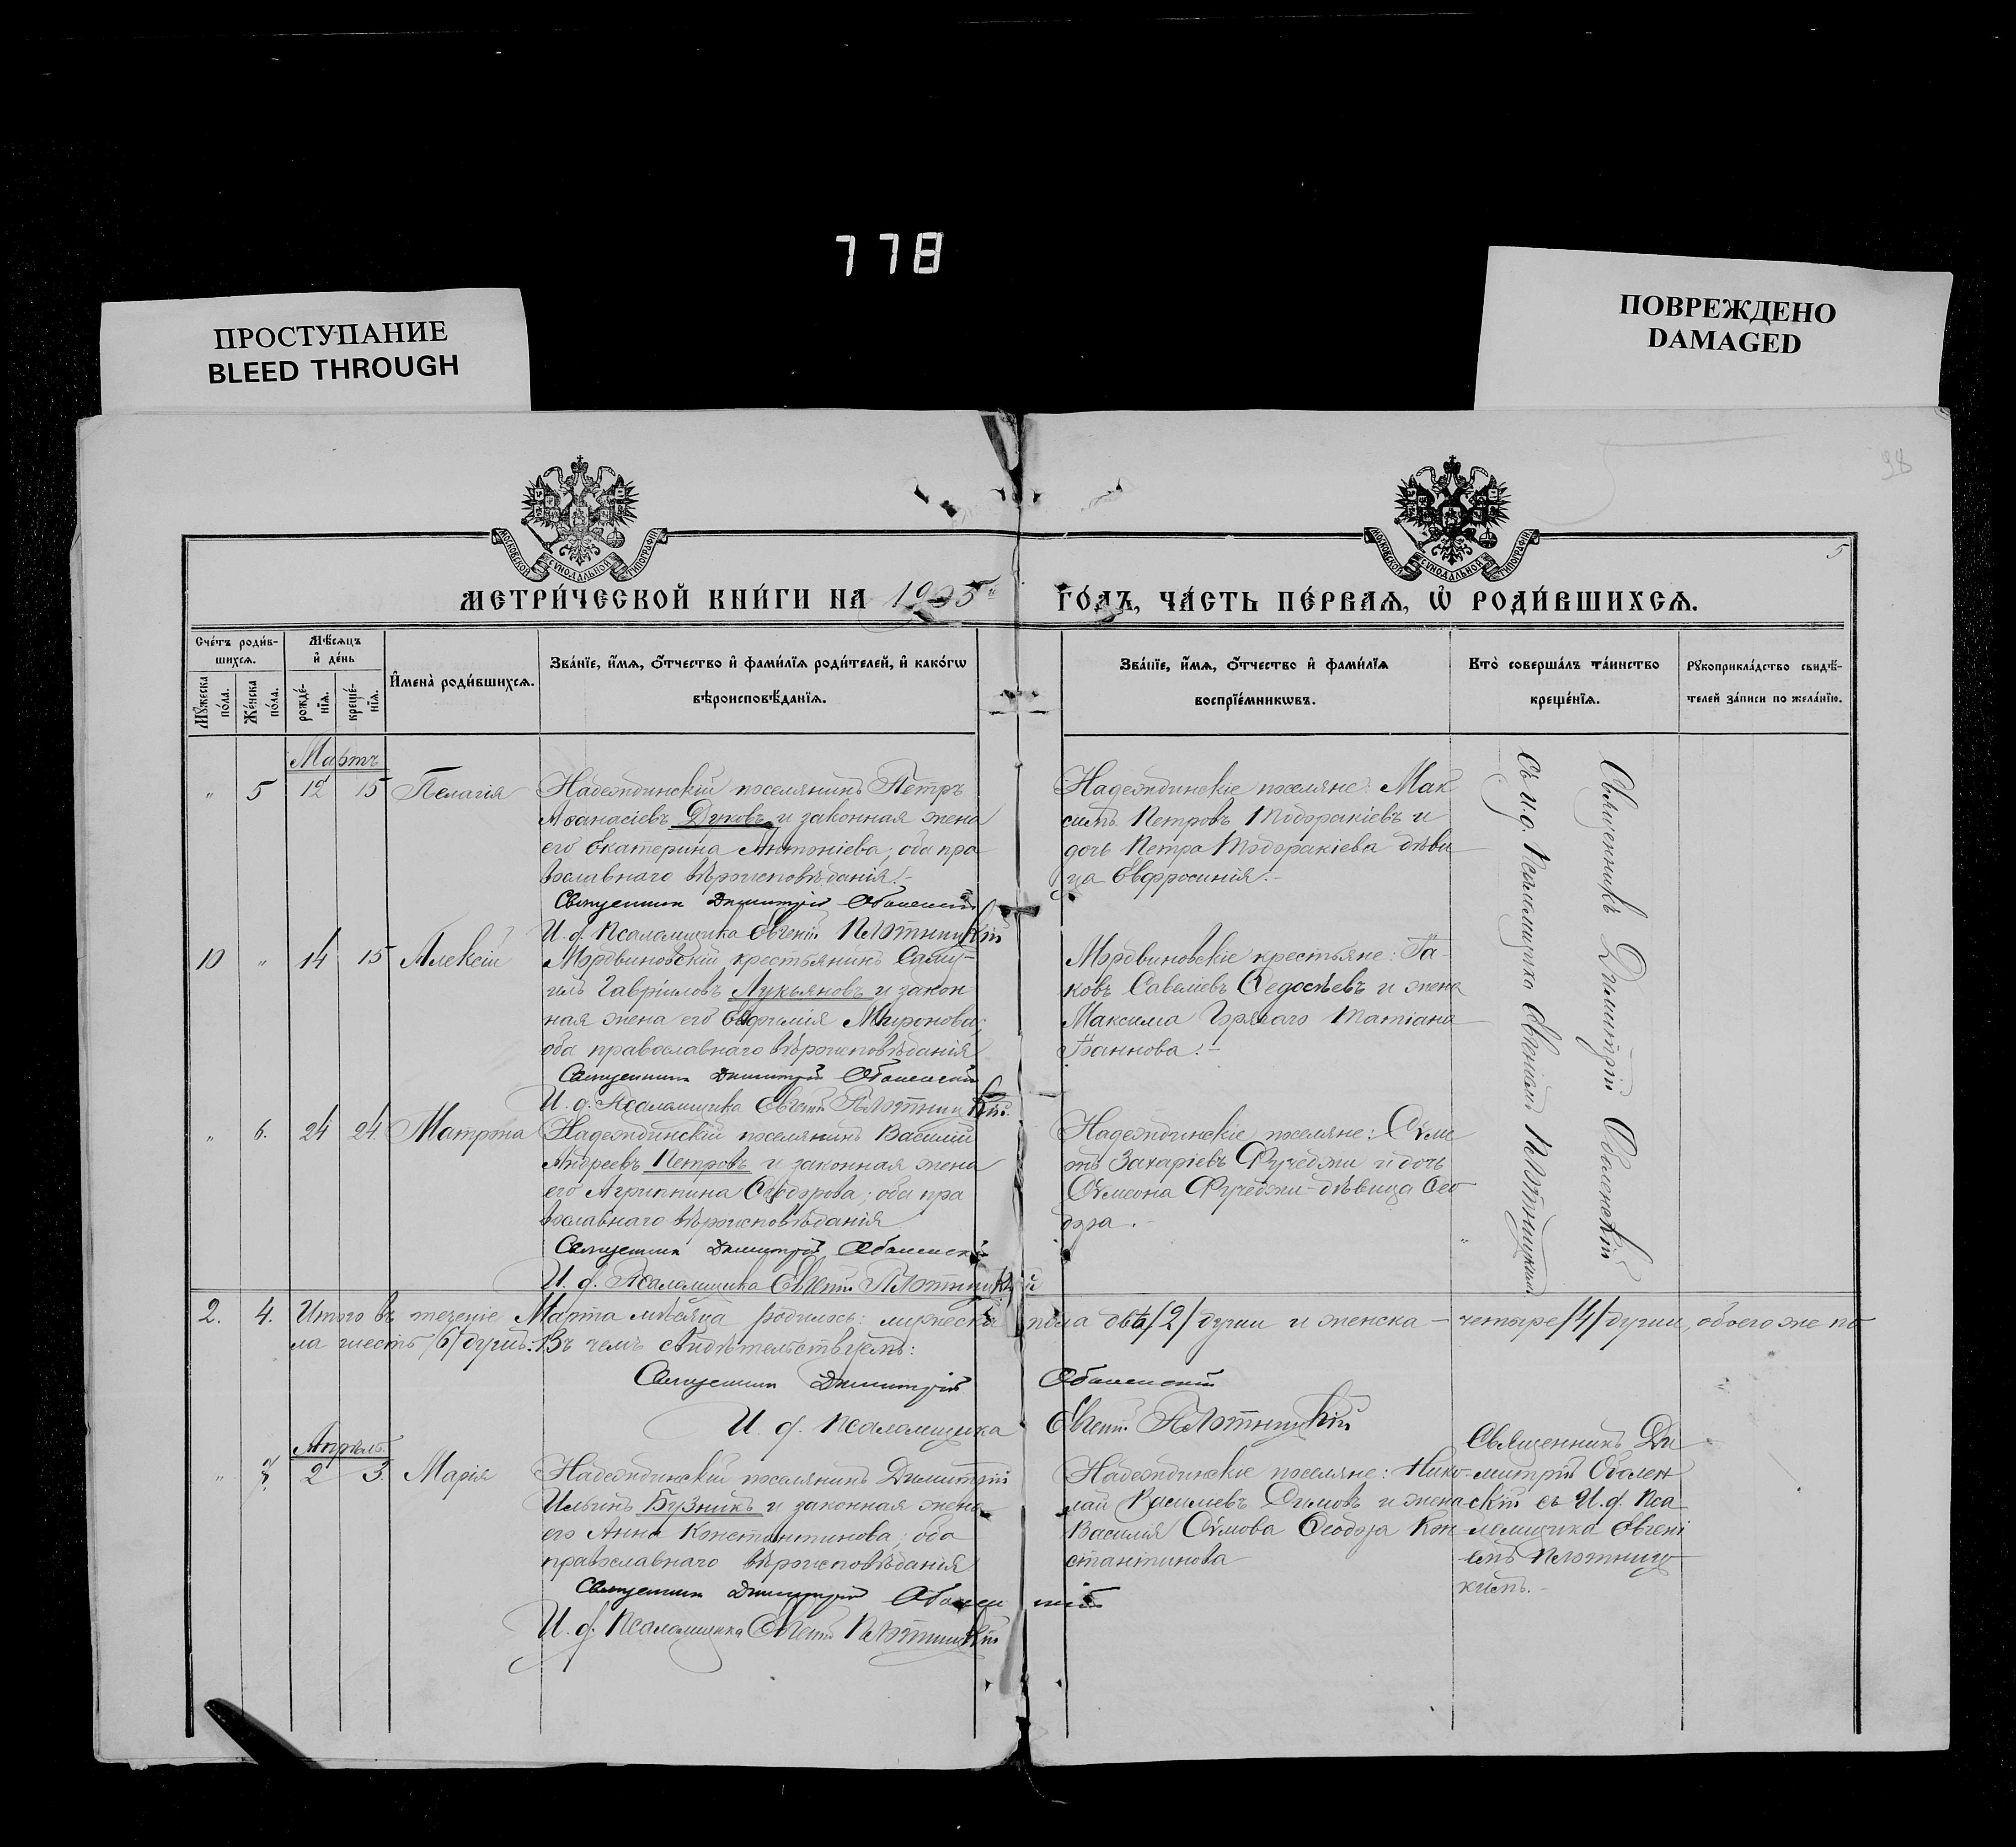 778
ПРОСТУПАНИЕ
BLEED THROUGH
ПОВРЕЖДЕНО
DAMAGED
98
5
МОСКОВСКОЙ СѴНОДАЛЬНОЙ ТИПОГРАФІИ
МОСКОВСКОЙ СѴНОДАЛЬНОЙ ТИПОГРАФІИ
МЕТРИ́ЧЕСКОЙ КНИ́ГИ НА 1905й ГО́ДЪ, ЧА́СТЬ ПЕ́РВАѦ, Ѡ҆ РОДИ́ВШИХСѦ.
Сче́тъ роди́в-
шихсѧ.
Мꙋ́жеска
по́ла.
Же́нска
по́ла.
Мѣ́сѧцъ
и҆ де́нь
рожде́-
нїѧ.
креще́-
нїѧ.
И҆мена̀ роди́вшихсѧ.
Зва́нїе, и҆́мѧ, ѻ҆́тчество и҆ фами́лїѧ роди́телей, и҆ како́гѡ
вѣроисповѣ́данїѧ.
Зва́нїе, и҆́мѧ, ѻ҆́тчество и҆ фами́лїѧ
воспрїе́мникѡвъ.
Кто̀ соверша́лъ та́инство
креще́нїѧ.
Рꙋкоприкла́дство свидѣ́-
телей за́писи по жела́нїю.
Мартъ
" 5 12 15 Пелагія
Надеждинскій поселянинъ Петръ
Аѳанасіевъ Дуковъ и законная жена
его Екатерина Антоніева; оба пра
вославнаго вѣроисповѣданія.-
Священникъ Димитрій Оболенскій
И. д. Псаломщика Евгеній Плотницкій
Надеждинскіе поселяне: Мак
симъ Петровъ Тодоракіевъ и
дочь Петра Тодоракіева дѣви
ца Евфросинія.-
Священникъ Димитрій Оболенскій
съ и. д. Псаломщика Евгеніемъ Плотницкимъ
10 " 14 15 Алексій
Мордвиновскій крестьянинъ Саму-
илъ Гавріиловъ Лукьяновъ и закон
ная жена его Евфимія Миронова;
оба православнаго вѣроисповѣданія
Священникъ Димитрій Оболенскій
И. д. Псаломщика Евгеній Плотницкій.
Мордвиновскіе крестьяне: Іа-
ковъ Савелиевъ Ѳедосѣевъ и жена
Максима Татіана
" 6. 24 24. Матрона
Надеждинскій поселянинъ Василій
Андреевъ Петровъ и законная жена
его Агриппина Ѳеодорова; оба пра
вославнаго вѣроисповѣданія
Священникъ Димитрій Оболенскій
И. д. Псаломщика Евгеній Плотницкій
Надеждинскіе поселяне: Сѵме
онъ Захаріевъ Фучеджи и дочь
Сѵмеона Фучеджи - дѣвица Ѳео
дора.-
2. 4. Итого въ теченіе Марта мѣсяца родилось: мужеска пола двѣ /2/ души и женска - четыре /4/ души, обоего же по
ла шесть /6/ душъ. Въ чемъ свидѣтельствуемъ:
Священникъ Димитрій Оболенскій
И. д. псаломщика Евгеній Плотницкій
Апрѣль.
" 7. 2 3. Марія
Надеждинскій поселянинъ Димитрій
Ильинъ Бузникъ и законная жена
его Анна Константинова; оба
православнаго вѣроисповѣданія
Священникъ Димитрій Оболенскій
И. д. Псаломщика Евгеній Плотницкій
Надеждинскіе поселяне: Нико-
лай Василиевъ Димовъ и жена
Василія Ѳеодора Кон
стантинова
Священникъ Ди
митрій Оболен
скій съ И. д. Пса
ломщика Евгені
емъ Плотниц
кимъ.-